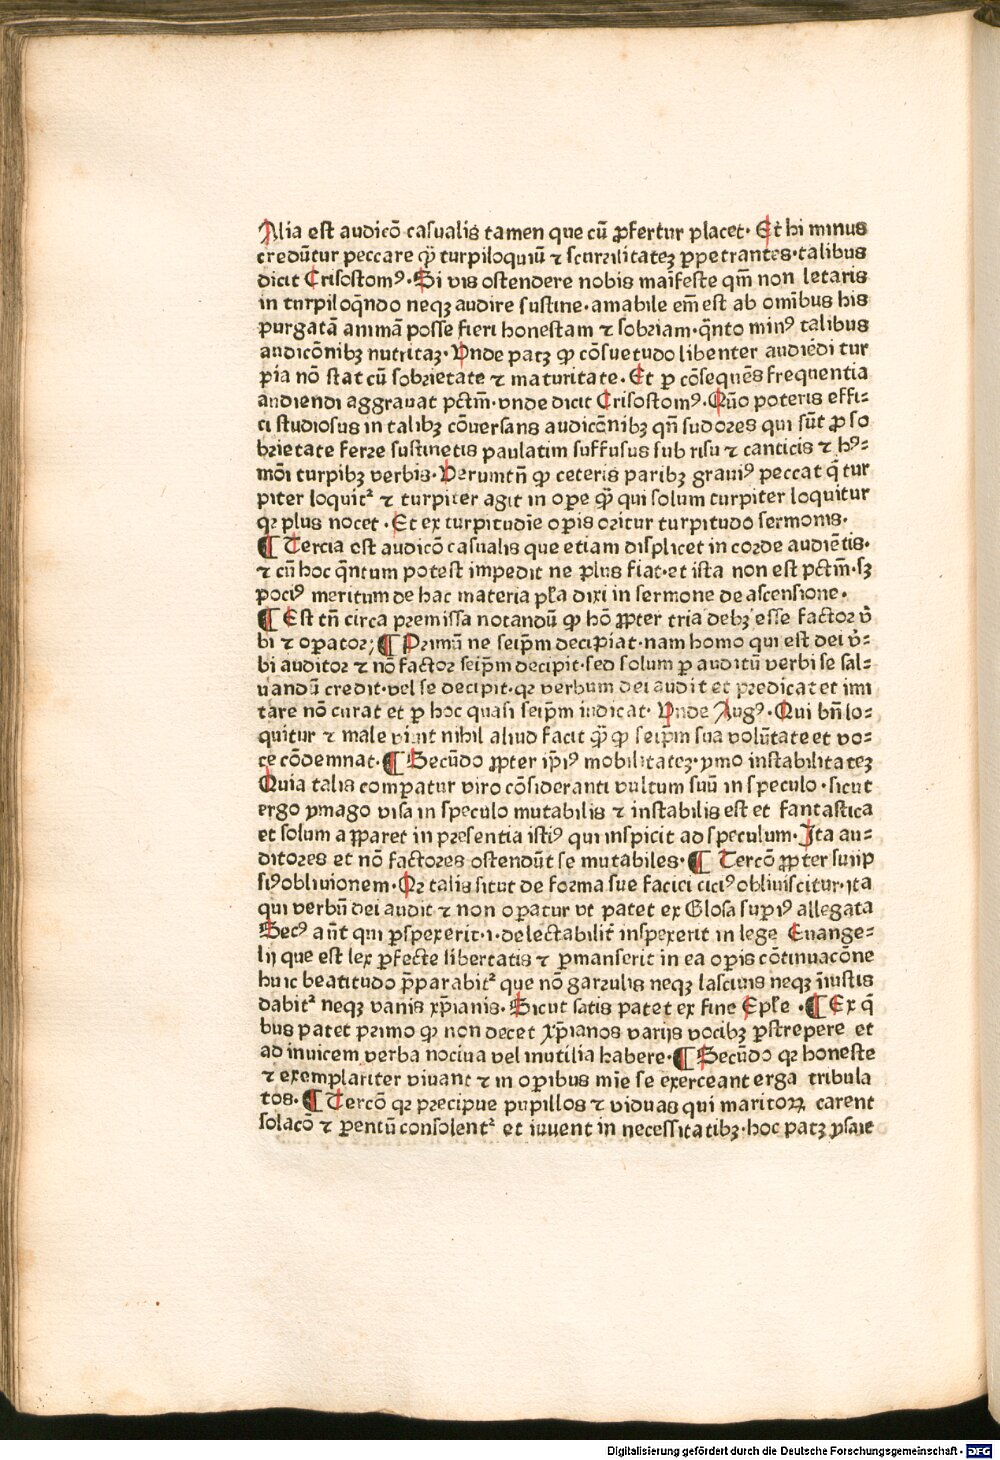 Alia est audicō casualis tamen que cū ꝓfertur placet· Et hi minus
credūtur peccare qꝫ̄ turpiloquiū ⁊ scurrilitateꝫ ꝑpetrantes·talibus
dicit Crisostomꝰ·Si vis ostendere nobis maīfeste qm̄ non letaris
in turpiloq̄ndo neqꝫ audire sustine·amabile em̄ est ab omībus his
purgatā animā posse fieri honestam ⁊ sobriam·q̄nto minꝰ talibus
audicōnibꝫ nutritaꝫ·Vnde patꝫ ꝙ cōsuetudo libenter audiēdi tur
pia nō stat cū sobrietate ⁊ maturitate·Et ꝑ cōsequēs frequentia
audiendi aggrauat pctm̄·vnde dicit Crisostomꝰ·Quō poteris effi⸗
ci studiosus in talibꝫ cōuersans audicēnibꝫ qn̄ sudores qui sūt ꝓ so
brietate ferre sustinetis paulatim suffusus sub risu ⁊ canticis ⁊ hꝰ⸗
mōi turpibꝫ verbis·Verumtn̄ ꝙ ceteris paribꝫ grauiꝰ peccat q̄ tur
piter loquitᷣ ⁊ turpiter agit in oꝑe qꝫ̄ qui solum turpiter loquitur
qꝛ plus nocet·Et ex turpitudīe oꝑis oritur turpitudo sermonis·
¶ Tercia est audicō casualis que etiam displicet in corde audiētis·
⁊ cū hoc q̄ntum potest impedit ne plus fiat·et ista non est pctm̄·sꝫ
pociꝰ meritum de hac materia pl̄a dixi in sermone de ascensione·
¶ Est tn̄ circa premissa notandū ꝙ hō ꝓpter tria debꝫ esse factor v̄
bi ⁊ oꝑator;¶ Primū ne seip̄m decipiat·nam homo qui est dei v̄⸗
bi auditor ⁊ nō factor seip̄m decipit·sed solum ꝑ auditū verbi se sal⸗
uandū credit·vel se decipit·qꝛ verbum dei audit et predicat et imi
tare nō curat et ꝑ hoc quasi seip̄m iudicat· Vnde Augꝰ·Qui bn̄ lo⸗
quitur ⁊ male viuit nihil aliud facit qꝫ̄ ꝙ seip̄m sua volūtate et vo⸗
ce cōdemnat·¶ Secūdo ꝓpter ip̄iꝰ mobilitateꝫ·ymo instabilitateꝫ
Quia talis comꝑatur viro cōsideranti vultum suū in speculo·sicut
ergo ymago visa in speculo mutabilis ⁊ instabilis est et fantastica
et solum aꝑparet in presentia istiꝰ qui inspicit ad speculum·Ita au⸗
ditores et nō factores ostendūt se mutabiles·¶ Tercō ꝓpter suiip
siꝰ obliuionem·Qꝛ talis situt de forma sue facici ciciꝰ obliuiscitur·ita
qui verbū dei audit ⁊ non oꝑatur vt patet ex Glosa supiꝰ allegata
Secꝰ aūt qui ꝑspexerit·i·delectabilit̄ inspexerit in lege Euange⸗
lij que est lex ꝑfecte libertatis ⁊ ꝑmanserit in ea oꝑis cōtinuacōne
huic beatitudo p̄parabitᷣ que nō garrulis neqꝫ lasciuis neqꝫ īiustis
dabitᷣ neqꝫ vanis xp̄ianis·Sicut satis patet ex fine Epl̄e ·¶ Ex q̄
bus patet primo ꝙ non decet xp̄ianos varijs vocibꝫ ꝑstrepere et
ad inuicem verba nociua vel inutilia habere·¶ Secūdo qꝛ honeste
⁊ exemplariter viuant ⁊ in oꝑibus mīe se exerceant erga tribula
tos·¶ Tercō qꝛ precipue pupillos ⁊ viduas qui maritoꝝ carent
solacō ⁊ ꝑentū consolentᷣ et iuuent in necessitatibꝫ·hoc patꝫ ꝑsaie
Digitalisierung gefördert durch die Deutsche Forschungsgemeinschaft · DFG